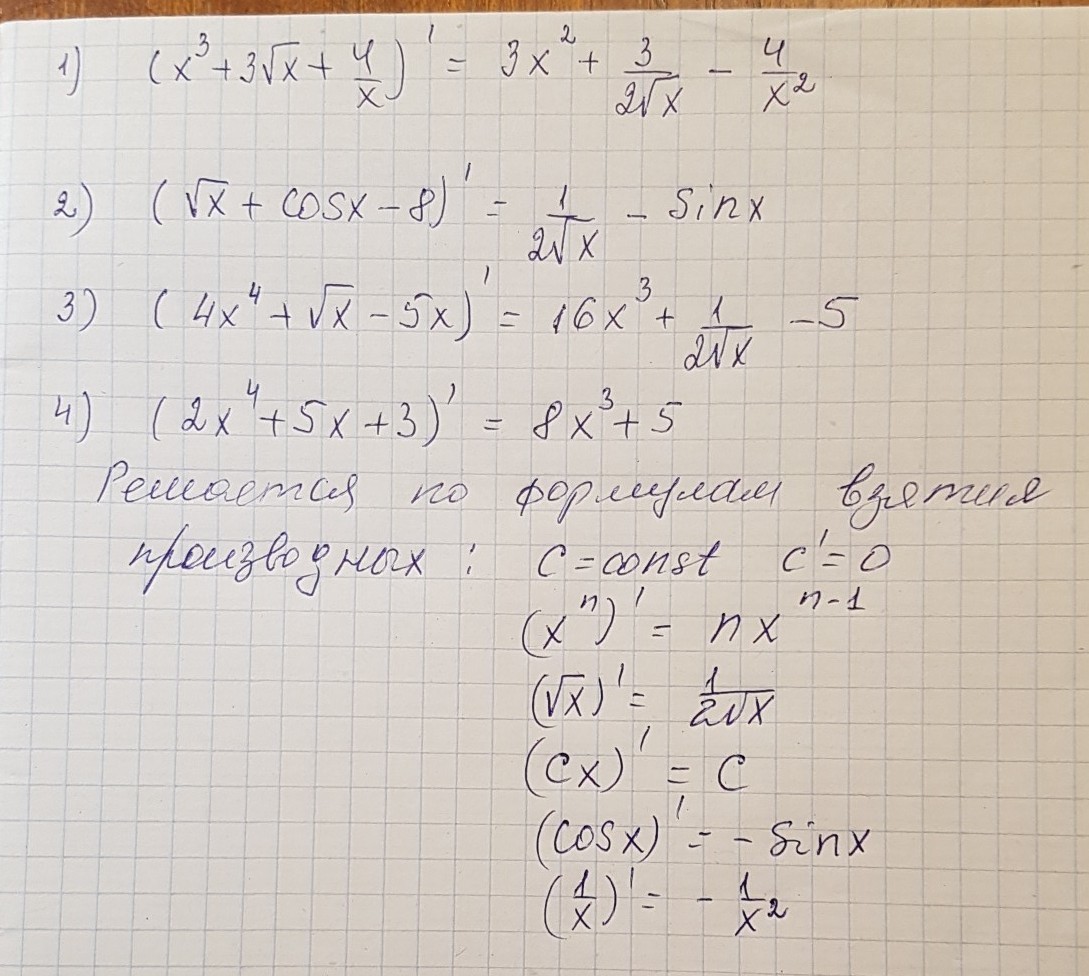 1) (x³+3√x+4/x)' = 3x²+ 3/2√x - 4/x²
2) (√x + cosx - 8)' = 1/2√x - sinx
3) (4x⁴+√x - 5x)' = 16x³+ 1/2√x - 5
4) (2x⁴+5x+3)' = 8x³+5
Решается по формулам взятия
производных: C=const C'=0
(xⁿ)' = nxⁿ⁻¹
(√x)' = 1/2√x
(Cx)' = C
(cosx)' = - sinx
(1/x)' = - 1/x²